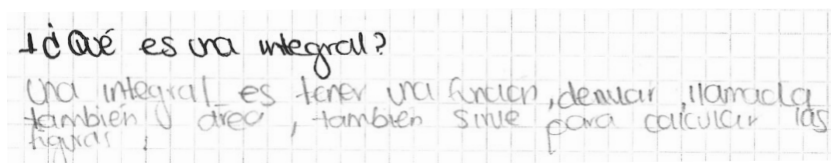 1¿Qué es una integral?
Una integral es tener una función, derivar, llamada
también área, también sirve para calcular las
figuras.